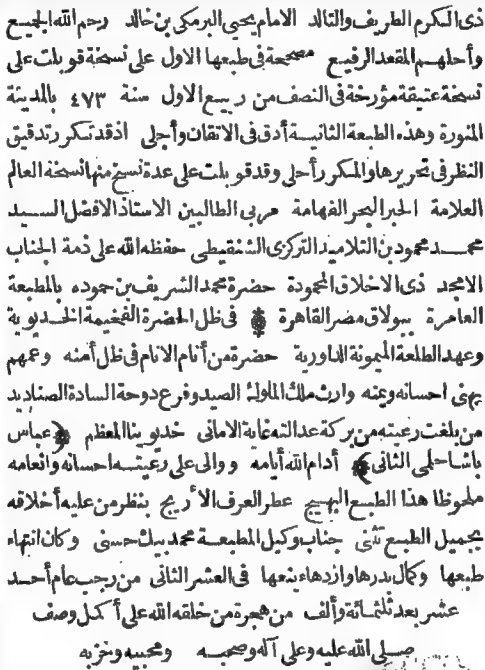 ذى المكرم الطريف والتالد الامام يحيى البرمكى بن خالد رحم الله الجميع
وأحلهم المقعد الرفيع مصححة فى طبعها الاول على نسخة قوبلت على
نسخة عتيقة مؤرخة فى النصف من ربيع الاول سنة ٤٧٣ بالمدينة
المنورة وهذه الطبعة الثانية أدق فى الاتقان وأجلى اذ قد تكرر تدقيق
النظر فى تحريرها والمكرر أحلى وقد قوبلت على عدة نسخ منها نسخة العالم
العلامة الحبر البحر الفهامة مربى الطالبين الاستاذ الافضل السيد
محمد محمود بن التلاميد التركزى الشنقيطى حفظه الله على ذمة الجناب
الامجد ذى الاخلاق المحمودة حضرة محمد الشريف بن حموده بالمطبعة
العامرة ببولاق مصر القاهرة * فى ظل الحضرة الفخيمة الخديوية
وعهد الطلعة الميمونة الداورية حضرة من أنام الانام فى ظل أمنه وعمهم
بهنى احسانه ويمنه وارث ملك الملوك الصيد وفرع دوحة السادة الصناديد
من بلغت رعيته من بركة عدالته غاية الامانى خديوينا المعظم ﴿عباس
باشا حلمى الثانى﴾ أدام الله أيامه ووالى على رعيته احسانه وانعامه
ملحوظا هذا الطبع البهيج عطر العرف الأريج بنظر من عليه أخلاقه
بجميل الطبع تثنى جناب وكيل المطبعة محمد بيك حسنى وكان انتهاء
طبعها وكمال بدرها وازدهاء ينعها فى العشر الثانى من رجب عام أحد
عشر بعد ثلثمائة وألف من هجرة من خلقه الله على أكمل وصف
صلى الله عليه وعلى آله وصحبه ومحبيه وحزبه